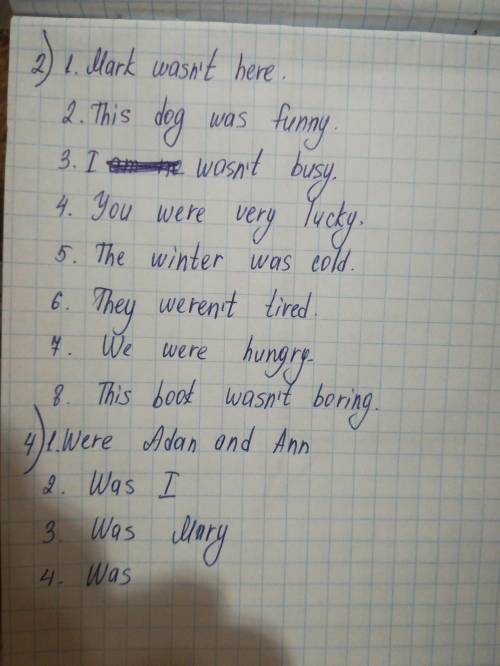 2) 1. Mark wasn't here.
2. This dog was funny.
3. I wasn't busy.
4. You were very lucky.
5. The winter was cold.
6. They weren't tired.
7. We were hungry.
8. This book wasn't boring.
4) 1. Were Adan and Ann
2. Was I
3. Was Mary
4. Was